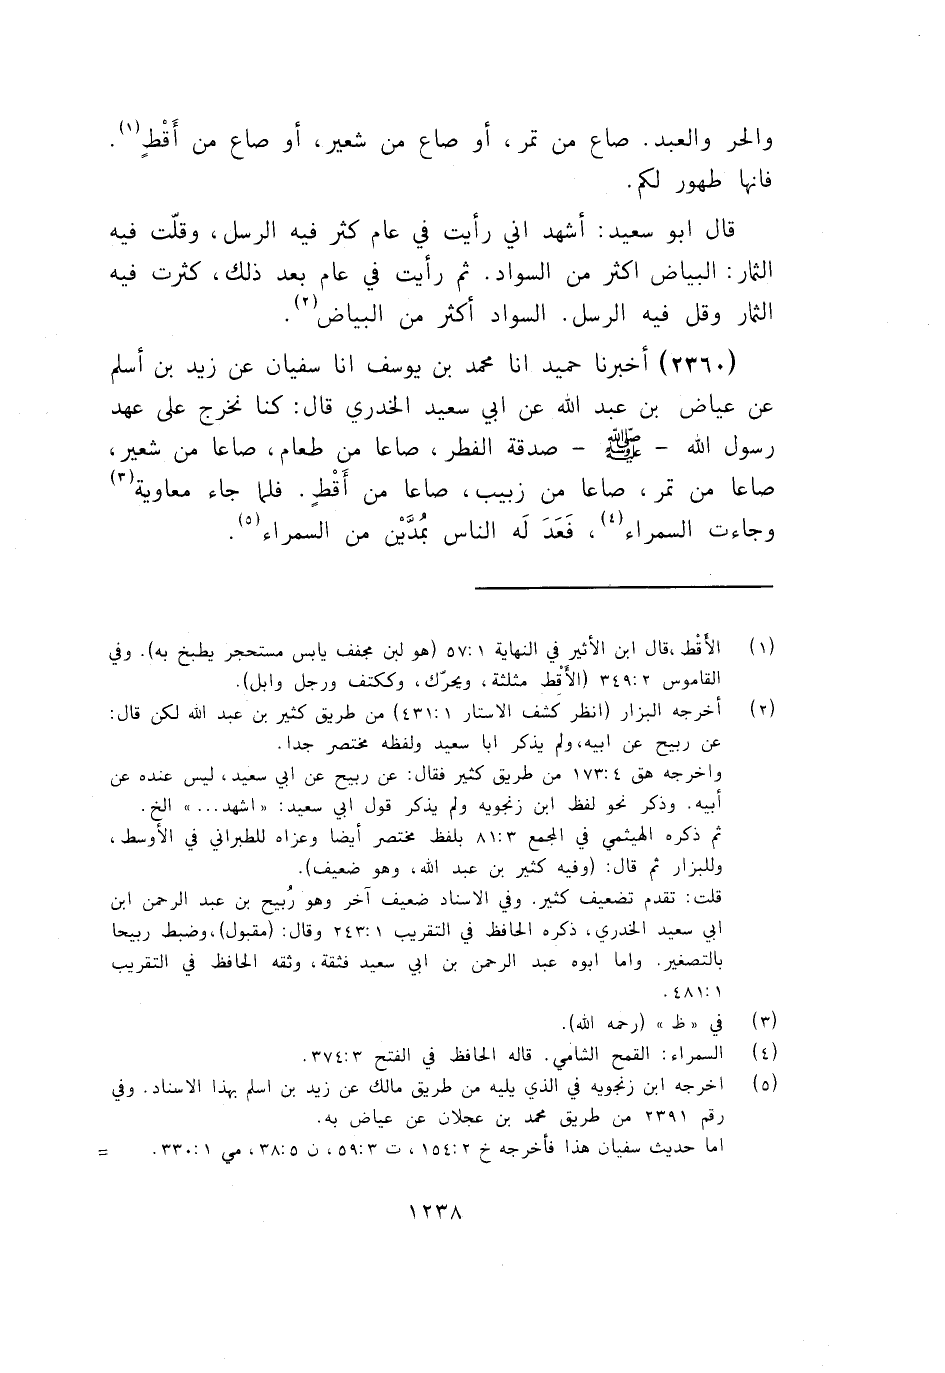 والحر والعبد. صاع من تمر، أو صاع من شعير، أو صاع من أَقْطٍ(١).
فانها طهور لكم.
قال ابو سعيد: أشهد اني رأيت في عام كثر فيه الرسل، وقلّت فيه
الثمار: البياض اكثر من السواد. ثم رأيت في عام بعد ذلك، كثرت فيه
الثمار وقل فيه الرسل. السواد أكثر من البياض(٢).
(٢٣٦٠) أخبرنا حميد انا محمد بن يوسف انا سفيان عن زيد بن أسلم
عن عياض بن عبد الله عن ابي سعيد الخدري قال: كنا نخرج على عهد
رسول الله - ﷺ - صدقة الفطر، صاعا من طعام، صاعا من شعير،
صاعا من تمر، صاعا من زبيب، صاعا من أَقْطٍ. فلما جاء معاوية(٣)
وجاءت السمراء(٤)، فَعَدَ لَه الناس بمُدَّيْن من السمراء(٥).
(١) الأَقْط، قال ابن الأثير في النهاية ١:٥٧ (هو لبن مجفف يابس مستحجر يطبخ به). وفي
القاموس ٢:٣٤٩ (الأَقْط مثلثة، ويحرّك، وككتف ورجل وابل).
(٢) أخرجه البزار (انظر كشف الاستار ١:٤٣١) من طريق كثير بن عبد الله لكن قال:
عن ربيح عن ابيه، ولم يذكر ابا سعيد ولفظه مختصر جدا.
واخرجه هق ٤:١٧٣ من طريق كثير فقال: عن ربيح عن ابي سعيد، ليس عنده عن
أبيه. وذكر نحو لفظ ابن زنجويه ولم يذكر قول ابي سعيد: «اشهد...» الخ.
ثم ذكره الهيثمي في المجمع ٣:٨١ بلفظ مختصر أيضا وعزاه للطبراني في الأوسط،
وللبزار ثم قال: (وفيه كثير بن عبد الله، وهو ضعيف).
قلت: تقدم تضعيف كثير. وفي الاسناد ضعيف آخر وهو رُبيح بن عبد الرحمن ابن
ابي سعيد الخدري، ذكره الحافظ في التقريب ١:٢٤٣ وقال: (مقبول)، وضبط ربيحا
بالتصغير. واما ابوه عبد الرحمن بن ابي سعيد فثقة، وثقه الحافظ في التقريب
١:٤٨١.
(٣) في «ظ» (رحمه الله).
(٤) السمراء: القمح الشامي. قاله الحافظ في الفتح ٣:٣٧٤.
(٥) اخرجه ابن زنجويه في الذي يليه من طريق مالك عن زيد بن اسلم بهذا الاسناد. وفي
رقم ٢٣٩١ من طريق محمد بن عجلان عن عياض به.
اما حديث سفيان هذا فأخرجه خ ٢:١٥٤، ت ٣:٥٩، ن ٥:٣٨، مي ١:٣٣٠. =
١٢٣٨